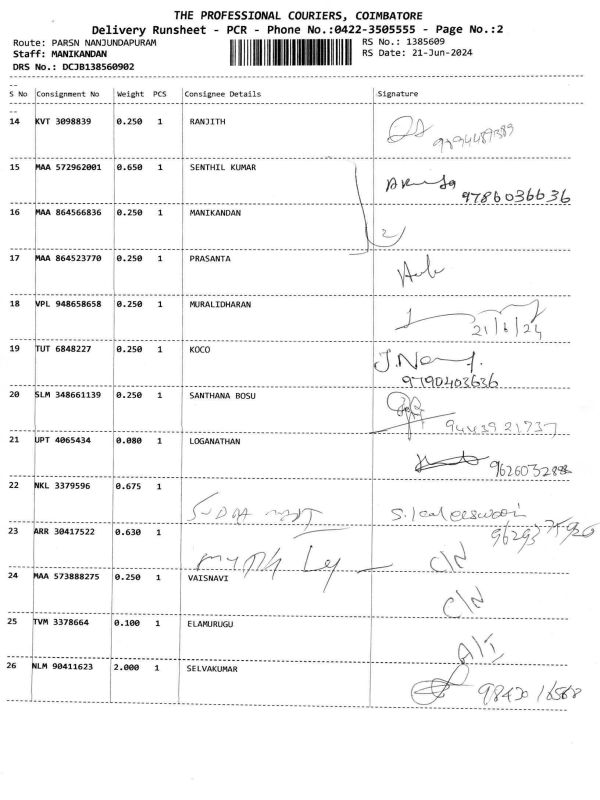 THE PROFESSIONAL COURIERS, COIMBATORE
Delivery Runsheet - PCR - Phone No.:0422-3505555 - Page No.:2
Route: PARSN NANJUNDAPURAM RS No.: 1385609
Staff: MANIKANDAN RS Date: 21-Jun-2024
DRS No.: DCJB138560902
--
S No Consignment No Weight PCS Consignee Details Signature
--
14 KVT 3098839 0.250 1 RANJITH
15 MAA 572962001 0.650 1 SENTHIL KUMAR
9786036636
16 MAA 864566836 0.250 1 MANIKANDAN
2
17 MAA 864523770 0.250 1 PRASANTA
18 VPL 948658658 0.250 1 MURALIDHARAN
21/6/24
19 TUT 6848227 0.250 1 KOCO
9790403636
20 SLM 348661139 0.250 1 SANTHANA BOSU
9443921737
21 UPT 4065434 0.080 1 LOGANATHAN
22 NKL 3379596 0.675 1
23 ARR 30417522 0.630 1
C/N
24 MAA 573888275 0.250 1 VAISNAVI
C/N
25 TVM 3378664 0.100 1 ELAMURUGU
A/I
26 NLM 90411623 2.000 1 SELVAKUMAR